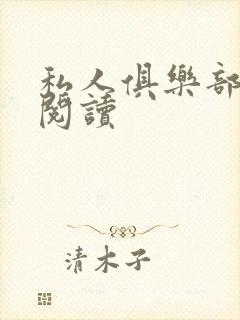 私人俱樂部
閱讀
清木子